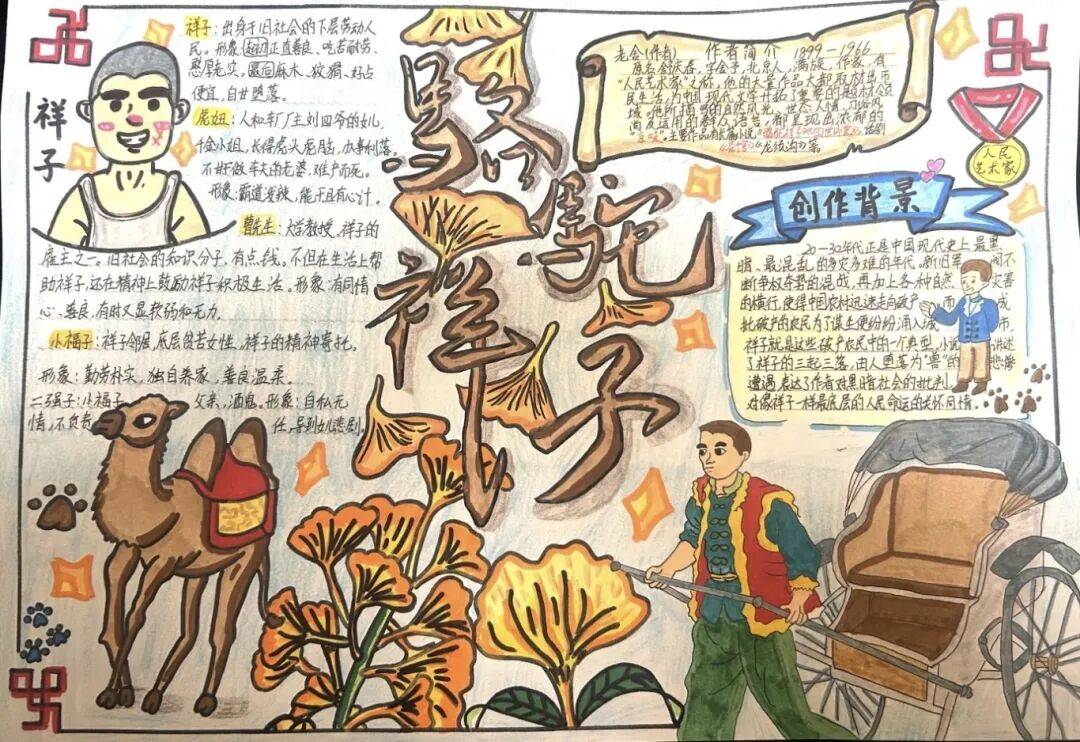 骆驼祥子
祥子
祥子：出身于旧社会的下层劳动人
民。形象：起初正直善良、吃苦耐劳、
憨厚老实，最后麻木、狡猾、好占
便宜，自甘堕落。
虎妞：人和车厂主刘四爷的女儿，
长得虎头虎脑，办事利落。
难产而死。
形象：霸道泼辣，能干且有心计。
曹先生：大学教授，祥子的
雇主之一，旧社会的知识分子，有点钱，不但在生活上帮
助祥子，还在精神上鼓励祥子积极生活。形象：有同情
心、善良，有时又显软弱和无力。
小福子：祥子邻居，底层贫苦女性，祥子的精神寄托。
形象：勤劳朴实，独自养家，善良温柔。
二强子：小福子 父亲，酒鬼。形象：自私无
情，不负责 任，导致女儿悲剧。
老舍(作者) 作者简介 1899-1966
原名舒庆春，字舍予，北京人，满族，作家，有
“人民艺术家”之称，他的大量作品大都取材于市
民生活，为中国现代文学开拓了重要的题材领
域。他所描写的自然风光、世态人情、习俗风
尚及运用的群众语言，都呈现出浓郁的
“京味”。主要作品有长篇小说
《茶馆》《龙须沟》等
人民
艺术家
创作背景
20-30年代正是中国现代史上最黑
暗、最混乱的多灾多难的年代。新旧军 间不
断争权夺势的混战，再加上各种自然 灾害
的横行，使得中国农村迅速走向破产，而 成
批破产的农民为了谋生便纷纷涌入城 市，
祥子就是这些破产农民中的一个典型。小说 讲述
了祥子的三起三落，由人堕落为“兽”的 悲惨
遭遇，表达了作者对黑暗社会的批判，
对像祥子一样最底层的人民命运的关怀同情。